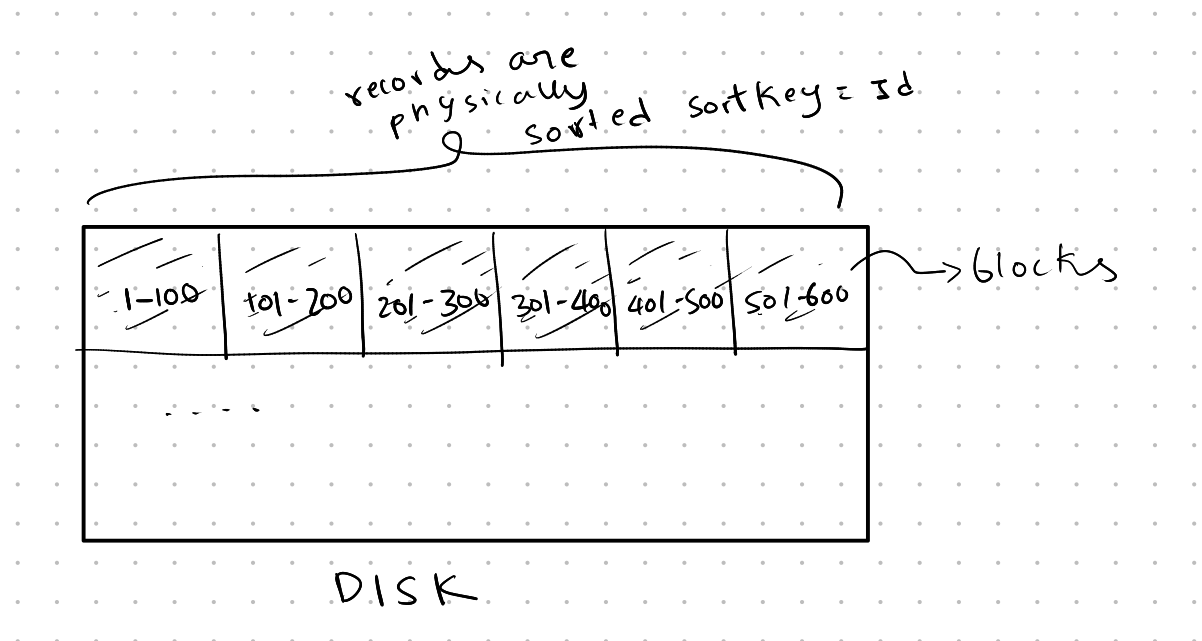 records are
physically
sorted sortkey = Id
1-100 101-200 201-300 301-400 401-500 501-600
blocks
....
DISK